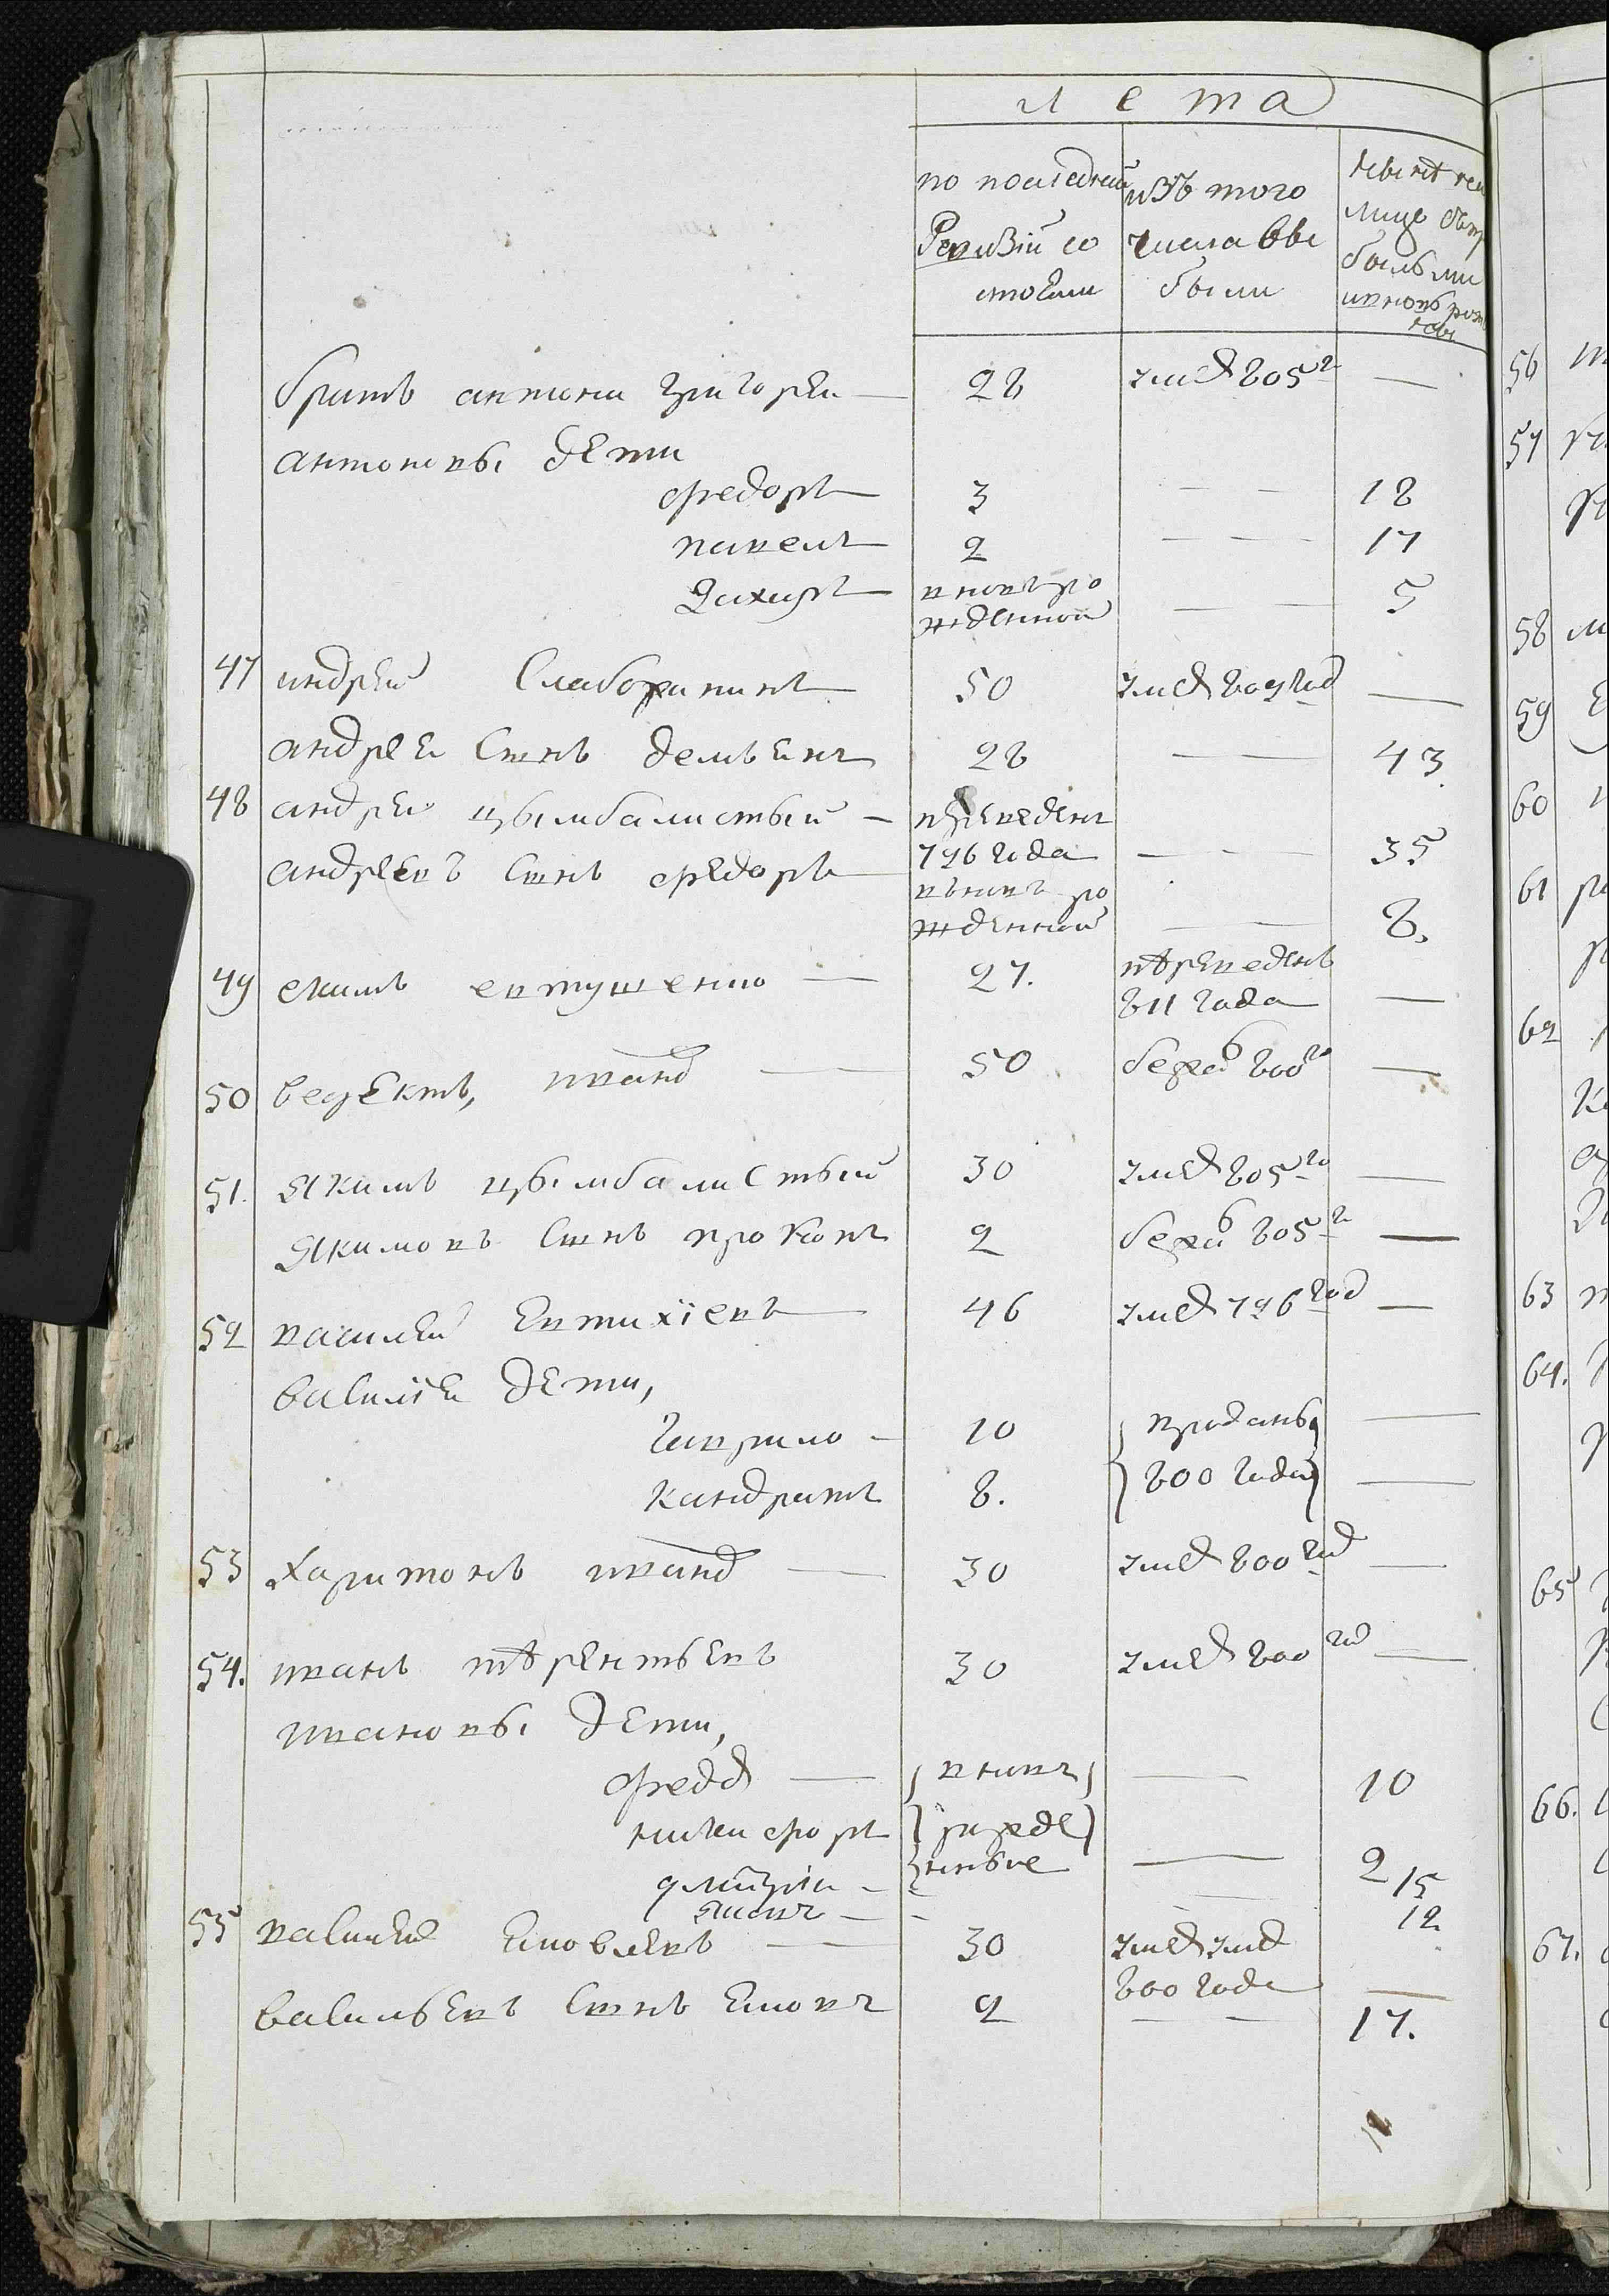 лета
по последней
Ревизіи со
стояли
изъ того
числа вы
были
ныне на
лицо съ при
былыми
и вновь рож
братъ антона григореи — 28 умеръ 805го —
антоновы дети
федоръ — 3 — — 18
павелъ — 2 — — 17
Захаръ — вновь ро
жденной — — 5
47 андрей Слаборапинъ — 50 умеръ 809 год —
андрея сынъ демьянъ 28 — 43.
48 андреи цымбалистый — преведенъ
796 года — 35
андреевъ сынъ федоръ — вновь ро
жденной — 8.
49 екимъ евтушенко — 27. переведенъ
811 года —
50 бедектъ, иванъ — 50 бежалъ 800го —
51. Якимъ цымбалистый 30 умеръ 805го —
Якимовъ сынъ прокопъ 2 бежалъ 805го —
52 василей Евтихіевъ — 46 умеръ 796 год —
василія дети,
гаврило — 10 проданы —
кандратъ 8. 800 года —
53 Харитонъ иванъ — 30 умеръ 800 год —
54. иванъ терентьевъ 30 умеръ 800 год —
ивановы дети,
федоръ — вновь — 10
никифоръ рожде — 2
дмитріи — нные — 15
яковъ — — 12
55 василей Яковлевъ — 30 умеръ
800 года —
васильевъ сынъ Яковъ 2 — — 17.
56
57
58
59
60
61
62
63
64.
65
66.
67.